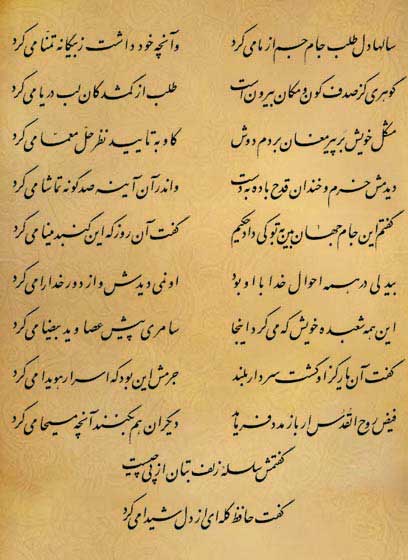 سالها دل طلب جام جم از ما می‌کرد وآنچه خود داشت ز بیگانه تمنّا می‌کرد
گوهری کز صدف کون و مکان بیرون است طلب از گمشدگان لب دریا می‌کرد
مشکل خویش بر پیر مغان بردم دوش کاو به تایید نظر حلّ معمّا می‌کرد
دیدمش خرم و خندان قدح باده به دست واندر آن آینه صد گونه تماشا می‌کرد
گفتم این جام جهان بین به تو کی داد حکیم گفت آن روز که این گنبد مینا می‌کرد
بیدلی در همه احوال خدا با او بود او نمی‌دیدش و از دور خدا را می‌کرد
این همه شعبده خویش که می‌کرد اینجا سامری پیش عصا و ید بیضا می‌کرد
گفت آن یار کز او گشت سر دار بلند جرمش این بود که اسرار هویدا می‌کرد
فیض روح القدس ار باز مدد فرماید دیگران هم بکنند آنچه مسیحا می‌کرد
گفتمش سلسلهٔ زلف بتان از پی چیست
گفت حافظ گله‌ای از دل شیدا می‌کرد